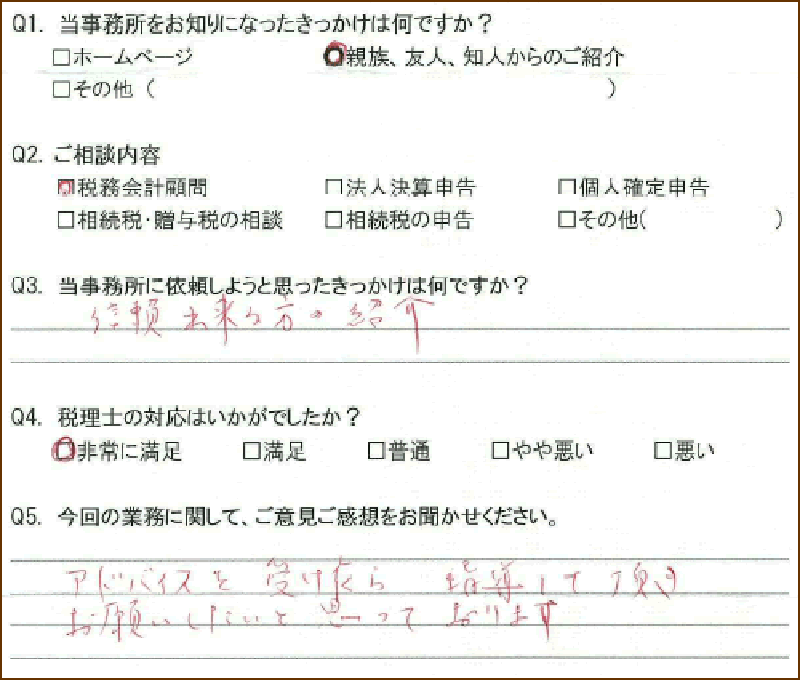 Q1. 当事務所をお知りになったきっかけは何ですか？
□ホームページ □親族、友人、知人からのご紹介
□その他（ ）
Q2. ご相談内容
□税務会計顧問 □法人決算申告 □個人確定申告
□相続税・贈与税の相談 □相続税の申告 □その他( )
Q3. 当事務所に依頼しようと思ったきっかけは何ですか？
信頼出来る方の紹介
Q4. 税理士の対応はいかがでしたか？
□非常に満足 □満足 □普通 □やや悪い □悪い
Q5. 今回の業務に関して、ご意見ご感想をお聞かせください。
アドバイスを受け 指導して頂き
お願いしたいと思って おります